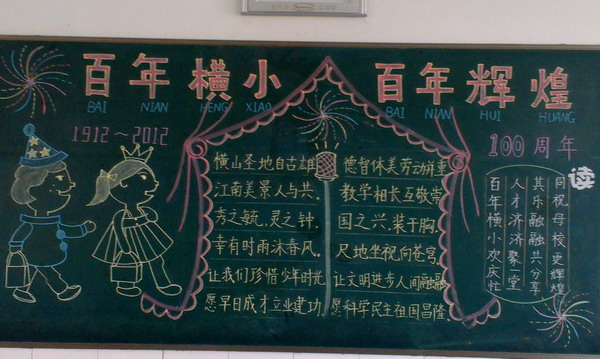 百年横小 百年辉煌
BAI NIAN HENG XIAO BAI NIAN HUI HUANG
1912~2012
100周年
横山圣地自古雄
江南美景人与共。
秀之毓,灵之钟,
幸有时雨沐春风。
让我们珍惜少年时光
愿早日成才立业建功,
德智体美劳动并重
教学相长互敬崇
国之兴,装于胸,
尺地坐视向苍穹,
让文明进步人间融融
愿科学民主祖国昌隆。
读
同祝母校更辉煌
其乐融融共分享
人才济济聚一堂
百年横小欢庆忙